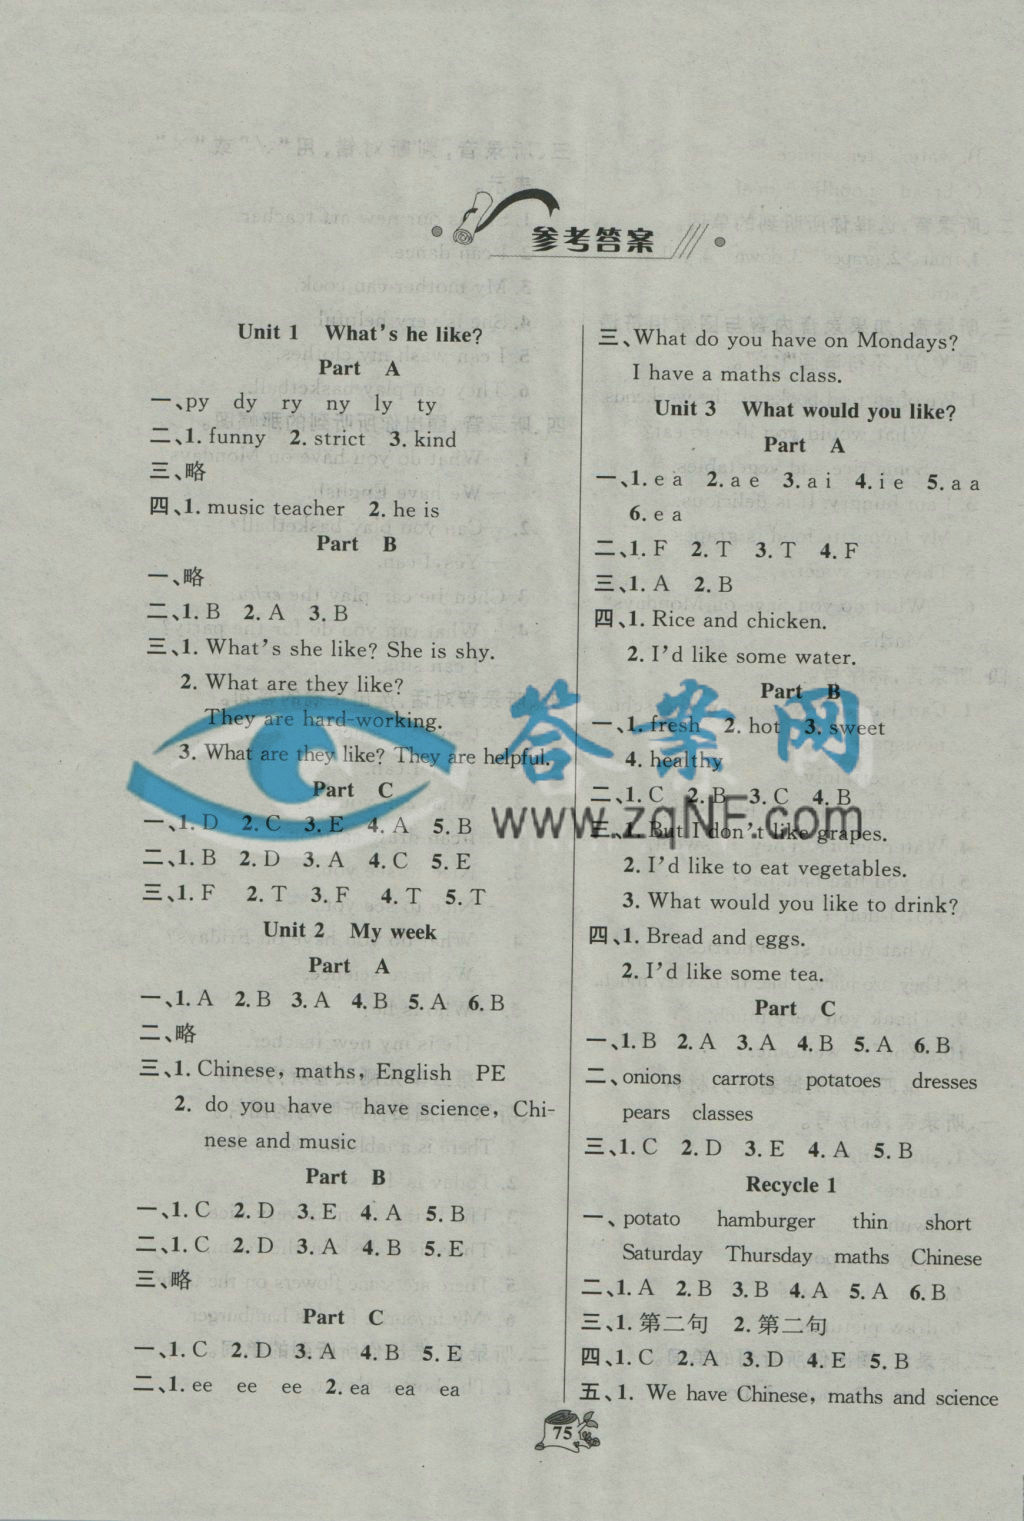 参考答案
Unit 1 What's he like?
Part A
一、py dy ry ny ly ty
二、1. funny 2. strict 3. kind
三、略
四、1. music teacher 2. he is
Part B
一、略
二、1. B 2. A 3. B
三、1. What's she like? She is shy.
2. What are they like?
They are hard-working.
3. What are they like? They are helpful.
Part C
一、1. D 2. C 3. E 4. A 5. B
二、1. B 2. D 3. A 4. C 5. E
三、1. F 2. T 3. F 4. T 5. T
Unit 2 My week
Part A
一、1. A 2. B 3. A 4. B 5. A 6. B
二、略
三、1. Chinese, maths, English PE
2. do you have have science, Chi-
nese and music
Part B
一、1. C 2. D 3. E 4. A 5. B
二、1. C 2. D 3. A 4. B 5. E
三、略
Part C
一、1. C 2. D 3. A 4. B 5. E
二、1. ee ee ee 2. ea ea ea
三、What do you have on Mondays?
I have a maths class.
Unit 3 What would you like?
Part A
一、1. e a 2. a e 3. a i 4. i e 5. a a
6. e a
二、1. F 2. T 3. T 4. F
三、1. A 2. B
四、1. Rice and chicken.
2. I'd like some water.
Part B
一、1. fresh 2. hot 3. sweet
4. healthy
二、1. C 2. B 3. C 4. B
三、1. But I don't like grapes.
2. I'd like to eat vegetables.
3. What would you like to drink?
四、1. Bread and eggs.
2. I'd like some tea.
Part C
一、1. B 2. A 3. A 4. B 5. A 6. B
二、onions carrots potatoes dresses
pears classes
三、1. C 2. D 3. E 4. A 5. B
Recycle 1
一、potato hamburger thin short
Saturday Thursday maths Chinese
二、1. A 2. B 3. B 4. A 5. A 6. B
三、1. 第二句 2. 第二句
四、1. C 2. A 3. D 4. E 5. B
五、1. We have Chinese, maths and science
75
答案网
www.zqNF.com